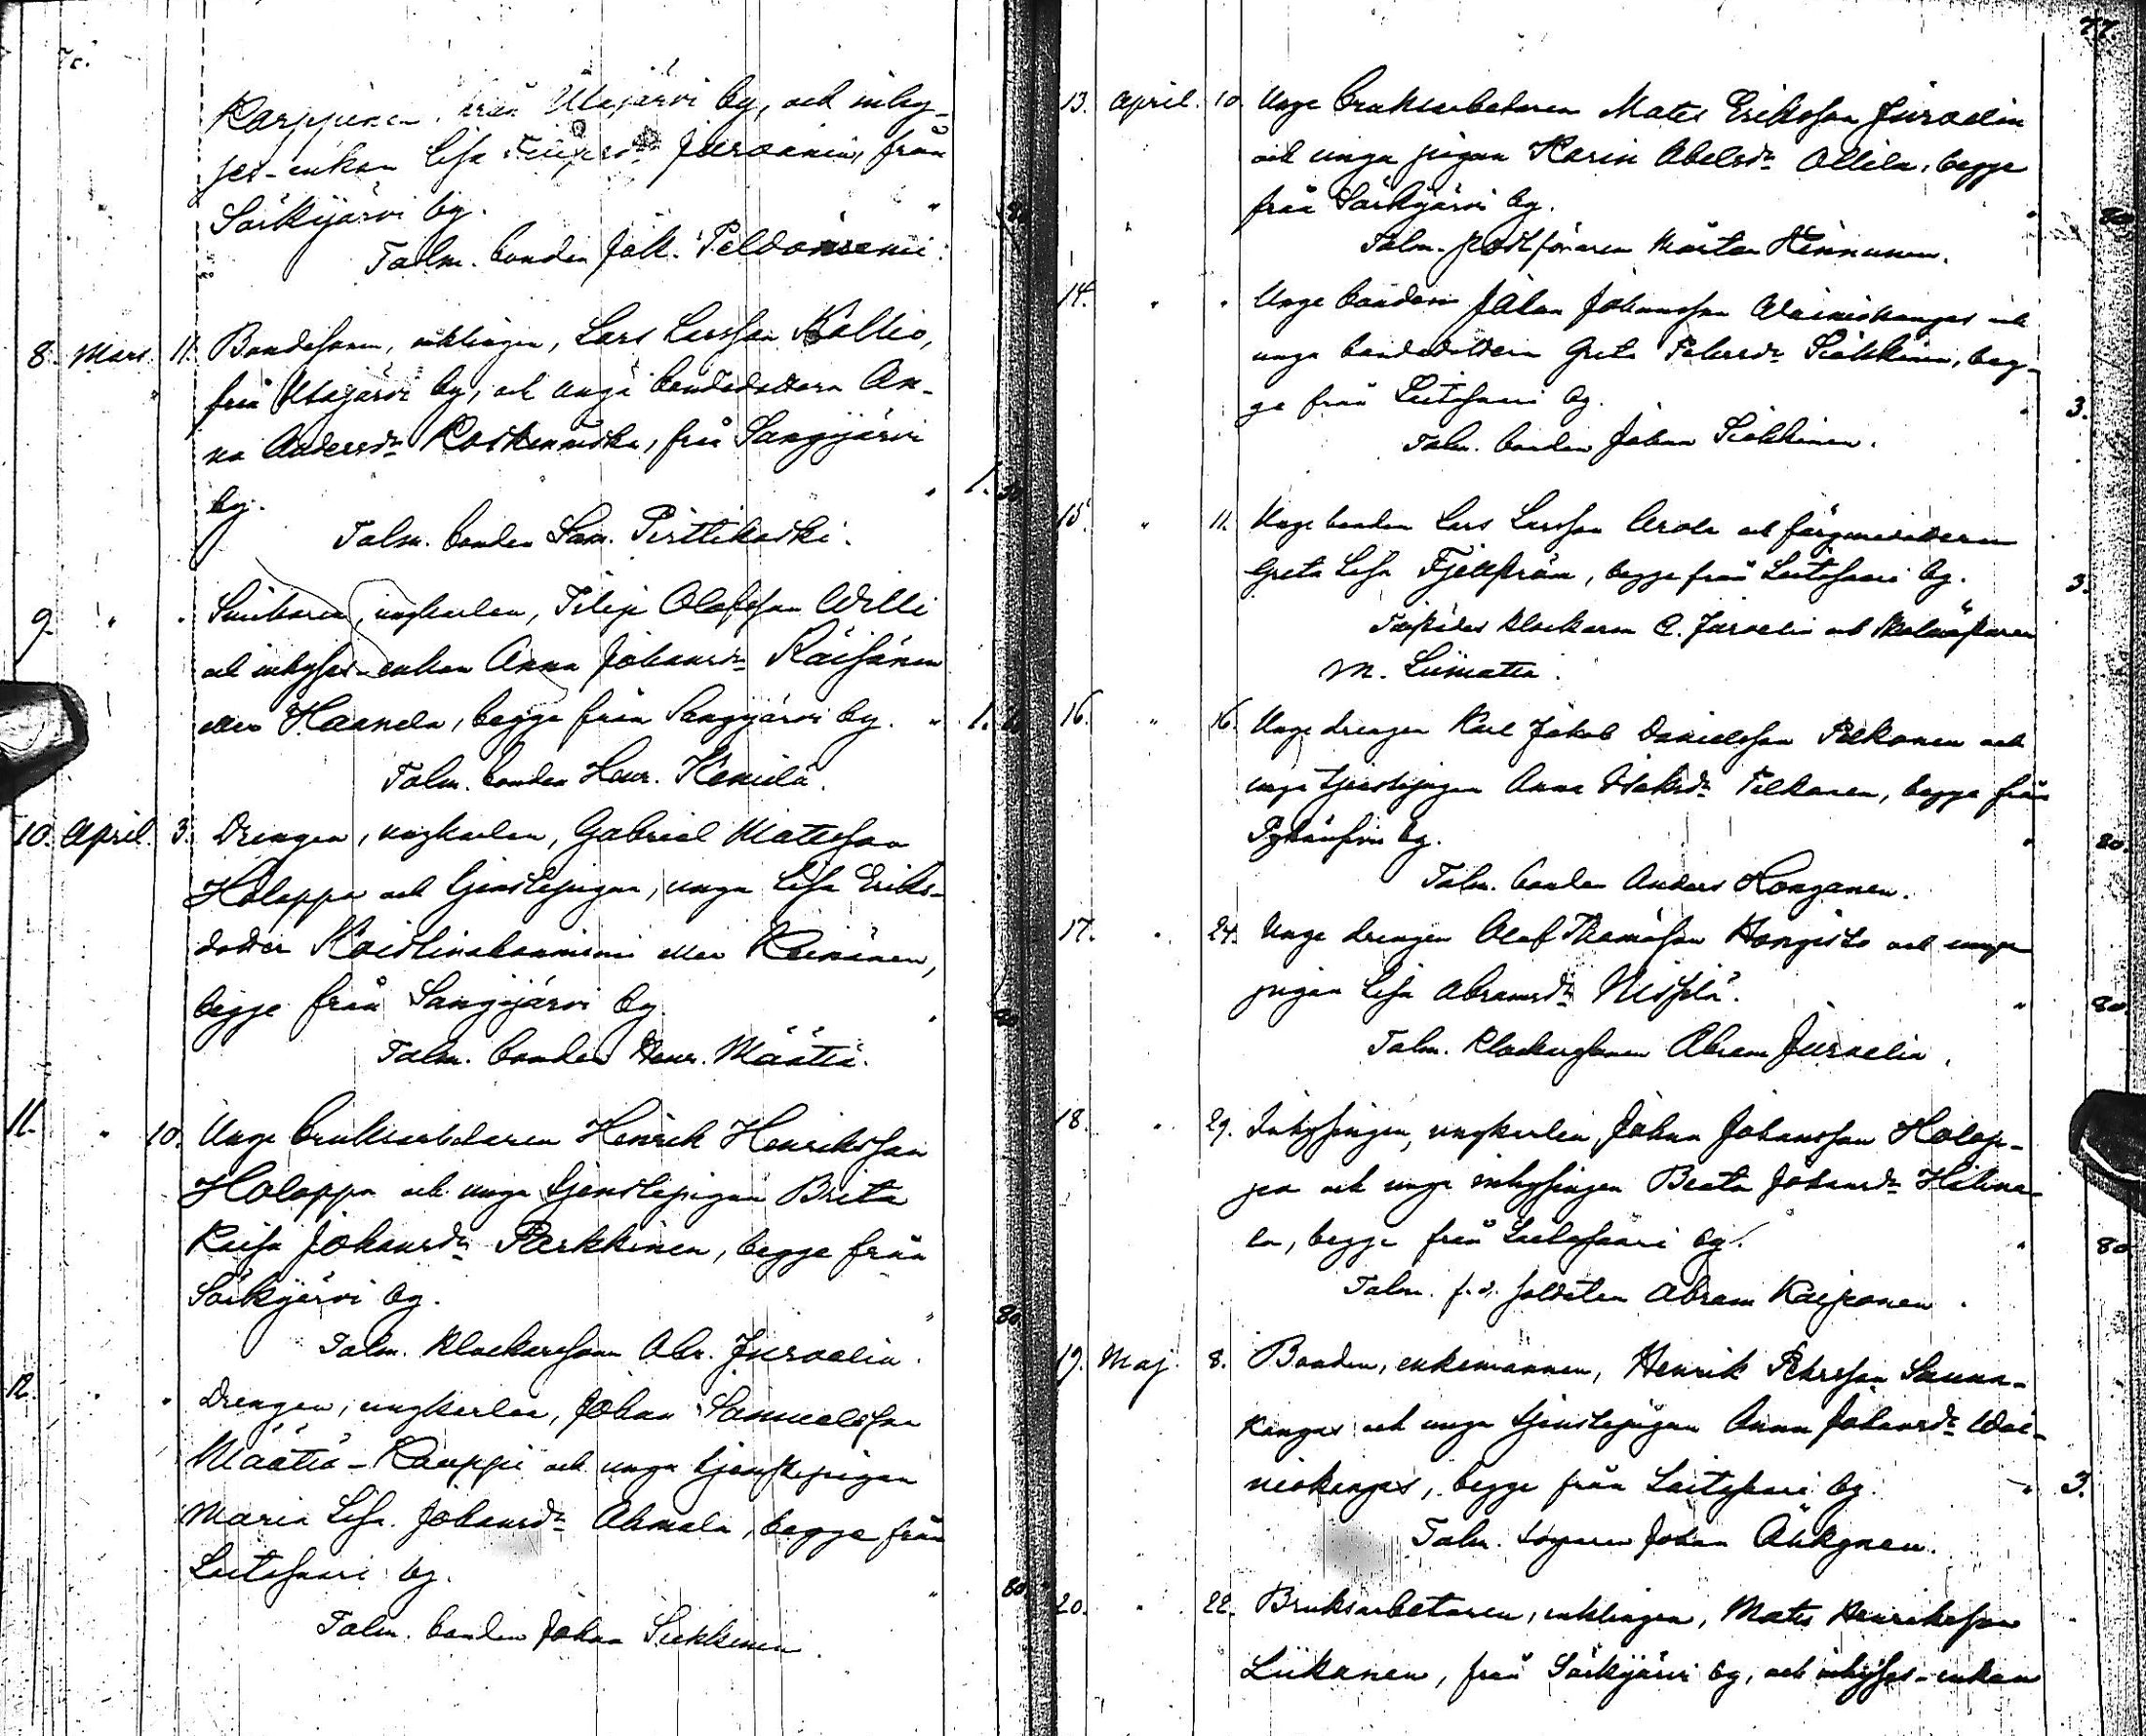 Karppinen, från Utajärvi by, och inhy-
ses-enkan Lisa Filipsdr Juvanin, från
Särkijärvi by. " 80
Talm. bonden Joh. Peldoniemi.
8. Mars 11. Bondesonen, enklingen, Lars Larsson Kallio,
från Utajärvi by, och unga bondedottern An-
na Andersdr Koskenniska, från Sangijärvi
by. " 1.
Talm. bonden Sam. Pirttikoski.
9. " " ungkarlen, Filip Olofsson Willi
och inhyses-enkan Anna Johansdr Räisänen
eller Haanela, begge från Sangijärvi by. " 1.
Talm. bonden Henr. Kemilä.
10. April. 3. Drengen, ungkarlen, Gabriel Matsson
Holappa och tjenstepigan, unga Lisa Eriks-
dotter eller Keinänen,
begge från Sangijärvi by. " 80
Talm. bonden Henr. Määttä.
11. " 10. Unge bruksarbetaren Henrik Henriksson
Holappa och unga tjenstepigan Brita
Kaisa Johansdr Parkkinen, begge från
Särkijärvi by. " 80
Talm. klockaresonen Abr. Juvaelin.
12. " " Drengen, ungkarlen, Johan Samuelsson
Määttä-Kauppi och unga tjenstepigan
Maria Lisa Johansdr Ahmala, begge från
Leitosaari by. " 80
Talm. bonden Johan Siekkinen.
77.
13. April. 10. Unge bruksarbetaren Mats Eriksson Juvaelin
och unga pigan Karin Abelsdr Ollila, begge
från Särkijärvi by. " 80
Talm. postföraren Mårten Hinnunen.
14. " " Unge bonden Johan Johansson Wainiokangas och
unga bondedottern Greta Petersdr Siekkinen, beg-
ge från Leitosaari by. " 3.
Talm. bonden Johan Siekkinen.
15. " 11. Unge bonden Lars Larsson Arola och
Greta Lisa Fjellström, begge från Leitosaari by. 3.
klockaren C. Juvelin och skolmästaren
M. Liimatta.
16. " 16. Unge drengen Karl Jakob Danielsson Pelkonen och
unga tjenstepigan Anna Isaksdr Pelkonen, begge från
by. " 80.
Talm. bonden Anders Honganen.
17. " 24. Unge drengen Olof Thomasson Hongisto och unga
pigan Lisa Abramsdr Nissilä. " 80.
Talm. klockaresonen Abram Juvaelin.
18. " 29. Inhysingen, ungkarlen, Johan Johansson Holap-
pa och unga inhysingen Beata Johansdr
la, begge från Leitosaari by. " 80
Talm. f.d. soldaten Abram Kaiponen.
19. Maj. 8. Bonden, enkemannen, Henrik Pehrsson Sauna-
kangas och unga tjenstepigan Anna Johansdr Wai-
niokangas, begge från Leitosaari by. " 3.
Talm. Johan Älikynen.
20. " 22. Bruksarbetaren, enklingen, Mats Henriksson
Liikanen, från Särkijärvi by, och inhyses-enkan